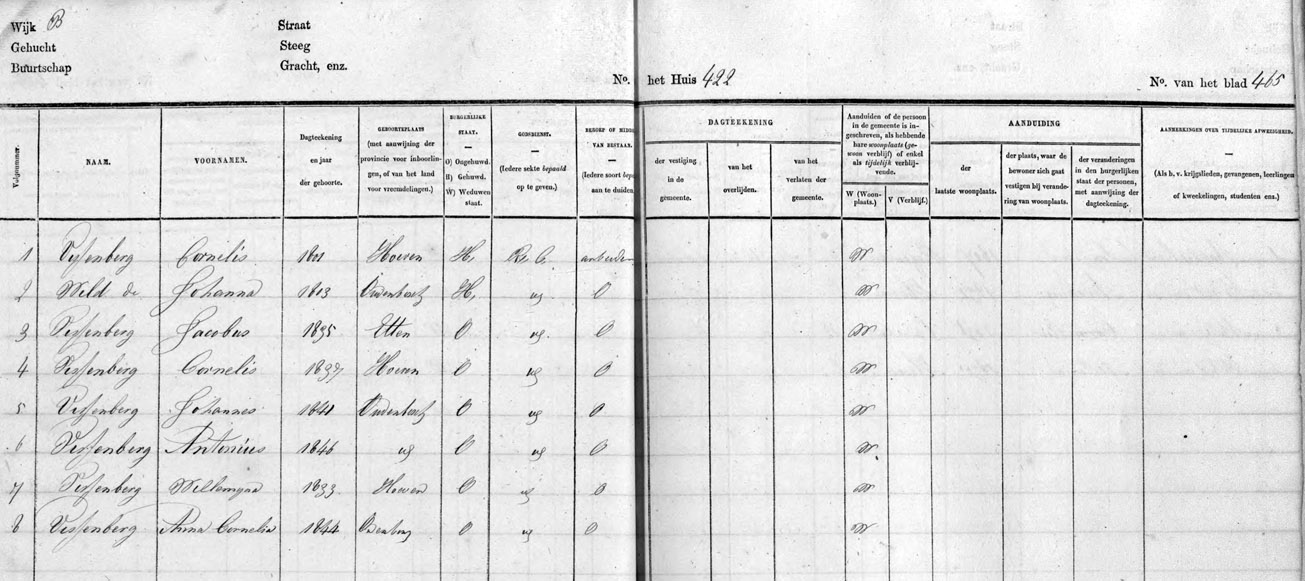 Wijk B Straat
Gehucht Steeg
Buurtschap Gracht, enz.
No. het Huis 422 No. van het blad 465
Volgnummer. NAAM. VOORNAMEN. Dagteekening en jaar der geboorte. GEBOORTEPLAATS (met aanwijzing der provincie voor inboorlingen, of van het land voor vreemdelingen.) BURGERLIJKE STAAT. — O) Ongehuwd. H) Gehuwd. W) Weduwenstaat. GODSDIENST. — (Iedere sekte bepaald op te geven.) BEROEP OF MIDDEL VAN BESTAAN. — (Iedere soort bepaald aan te duiden.)
DAGTEEKENING der vestiging in de gemeente. van het overlijden. van het verlaten der gemeente.
Aanduiden of de persoon in de gemeente is ingeschreven, als hebbende hare woonplaats (gewoon verblijf) of enkel als tijdelijk verblijvende. W (Woonplaats.) V (Verblijf.)
AANDUIDING der laatste woonplaats. der plaats, waar de bewoner zich gaat vestigen bij verandering van woonplaats. der veranderingen in den burgerlijken staat der personen, met aanwijzing der dagteekening.
AANMERKINGEN OVER TIJDELIJKE AFWEZIGHEID. — (Als b. v. krijgslieden, gevangenen, leerlingen of kweekelingen, studenten enz.)
1 Vessenberg Cornelis 1801 Hoeven H, R. C. arbeider W
2 Wild de Johanna 1803 Oudenbosch H, ug O W
3 Vessenberg Jacobus 1835 Etten O ug O W
4 Vessenberg Cornelis 1837 Hoeven O ug O W
5 Vessenberg Johannes 1841 Oudenbosch O ug O W
6 Vessenberg Antonius 1846 ug O ug O W.
7 Vessenberg Willemyna 1833 Hoeven O ug O W
8 Vessenberg Anna Cornelia 1844 O ug O W